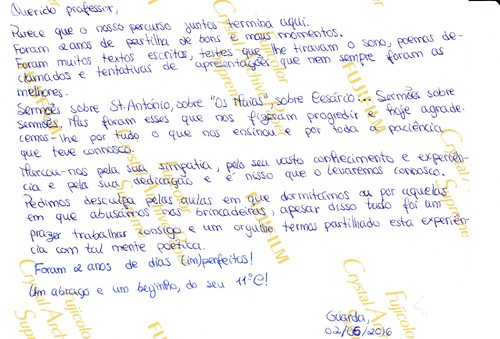 Querido professor,
Parece que o nosso percurso juntos termina aqui.
Foram 2 anos de partilha de bons e maus momentos.
Foram muitos textos escritos, testes que lhe tiravam o sono, poemas de-
clamados e tentativas de apresentações que nem sempre foram as
melhores.
Sermões sobre St. António, sobre "Os Maias", sobre Cesário... Sermões sobre
Sermões. Mas foram esses que nos fizeram progredir e hoje agrade-
cemos-lhe por tudo o que nos ensinou e por toda a paciência
que teve connosco.
Marcou-nos pela sua simpatia, pelo seu vasto conhecimento e experiên-
cia e pela sua dedicação e é nisso que o levaremos connosco.
Pedimos desculpa pelas aulas em que dormitámos ou por aquelas
em que abusámos nas brincadeiras, apesar disso tudo foi um
prazer trabalhar consigo e um orgulho termos partilhado esta experiên-
cia com tal mente poética.
Foram 2 anos de dias (im)perfeitos!
Um abraço e um beijinho, do seu 11ºC!
Guarda,
02/06/2016
Fujicolor
Crystal Archive
Supreme
FUJIFILM
Fujicolor
Crystal Archive
Supreme
FUJIFILM
Fujicolor
Crystal Archive
Supreme
FUJIFILM
Fujicolor
Crystal Arch
Supreme